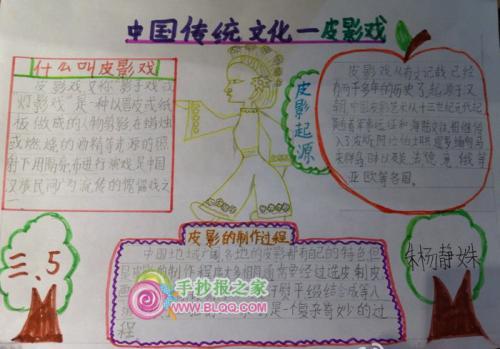 中国传统文化—皮影戏
什么叫皮影戏
皮影戏又称"影子戏"或
"灯影戏"是一种以兽皮或纸
板做成的人物剪影在蜡烛
或燃烧的酒精等光源的照
射下用隔亮布进行演戏是中国
汉族民间广为流传的傀儡戏之
一
皮影起源
皮影戏从有文记载已经
有两千多年的历史
中国皮影艺术从十三世纪元代起
随着军事远征和海陆交往相继传
入了波斯阿拉伯土耳其暹罗缅甸马
来群岛日本以及英法德意俄等
亚欧等各国。
皮影的制作过程
中国地域广阔各地的皮影都有自己的特色但
是皮影的制作程序大多相同通常要经过选皮制皮
画 熨平缀结合成等八
是一个复杂奇妙的过
程
三、5
朱杨静姝
手抄报之家
WWW.BLQQ.COM